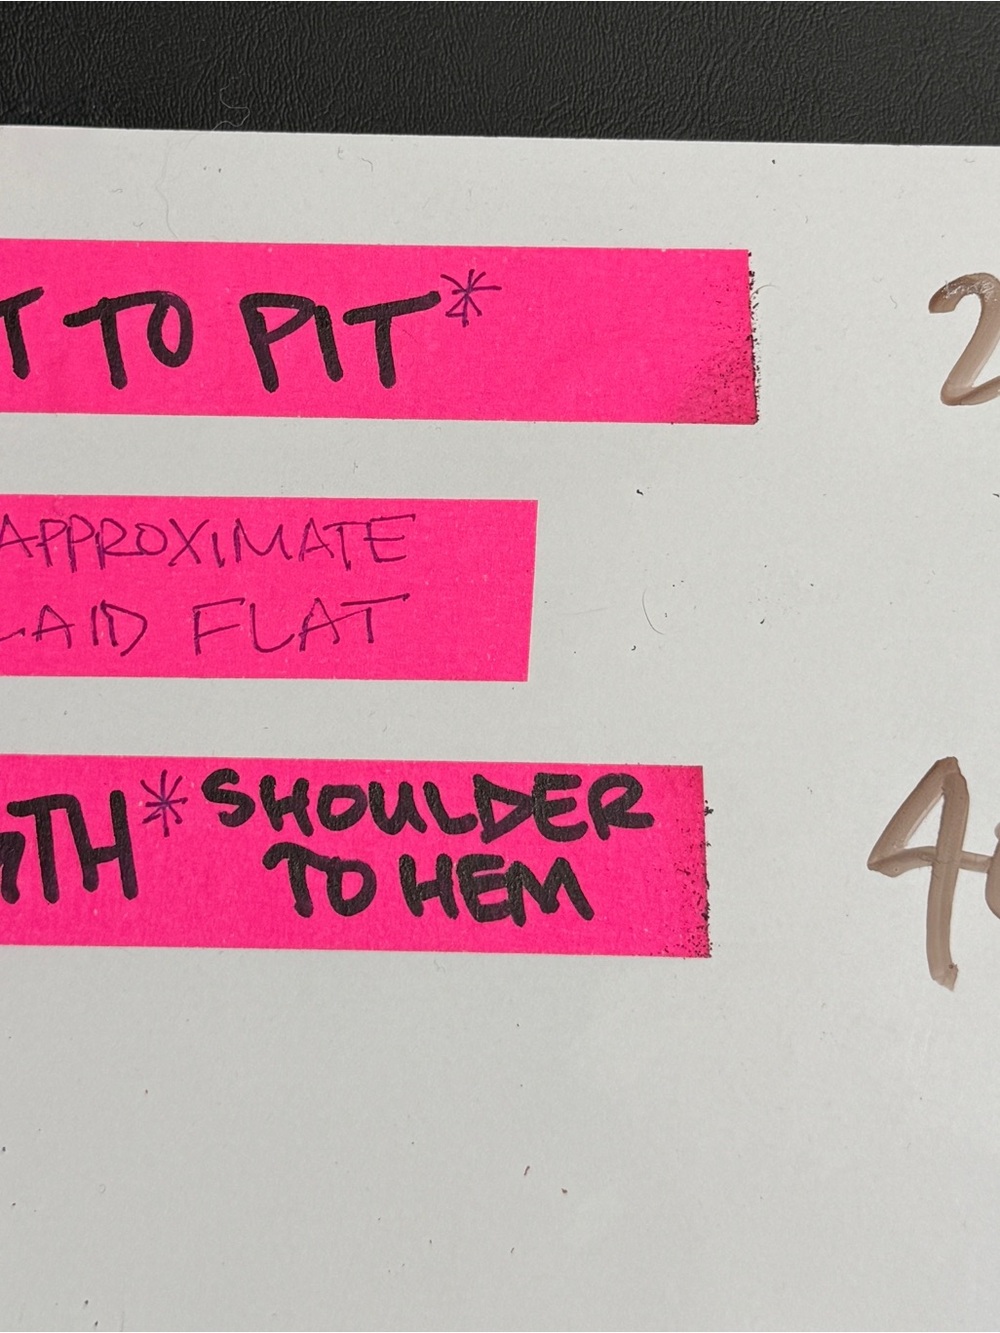 T TO PIT* 2
APPROXIMATE
LAID FLAT
GTH* SHOULDER
TO HEM
4